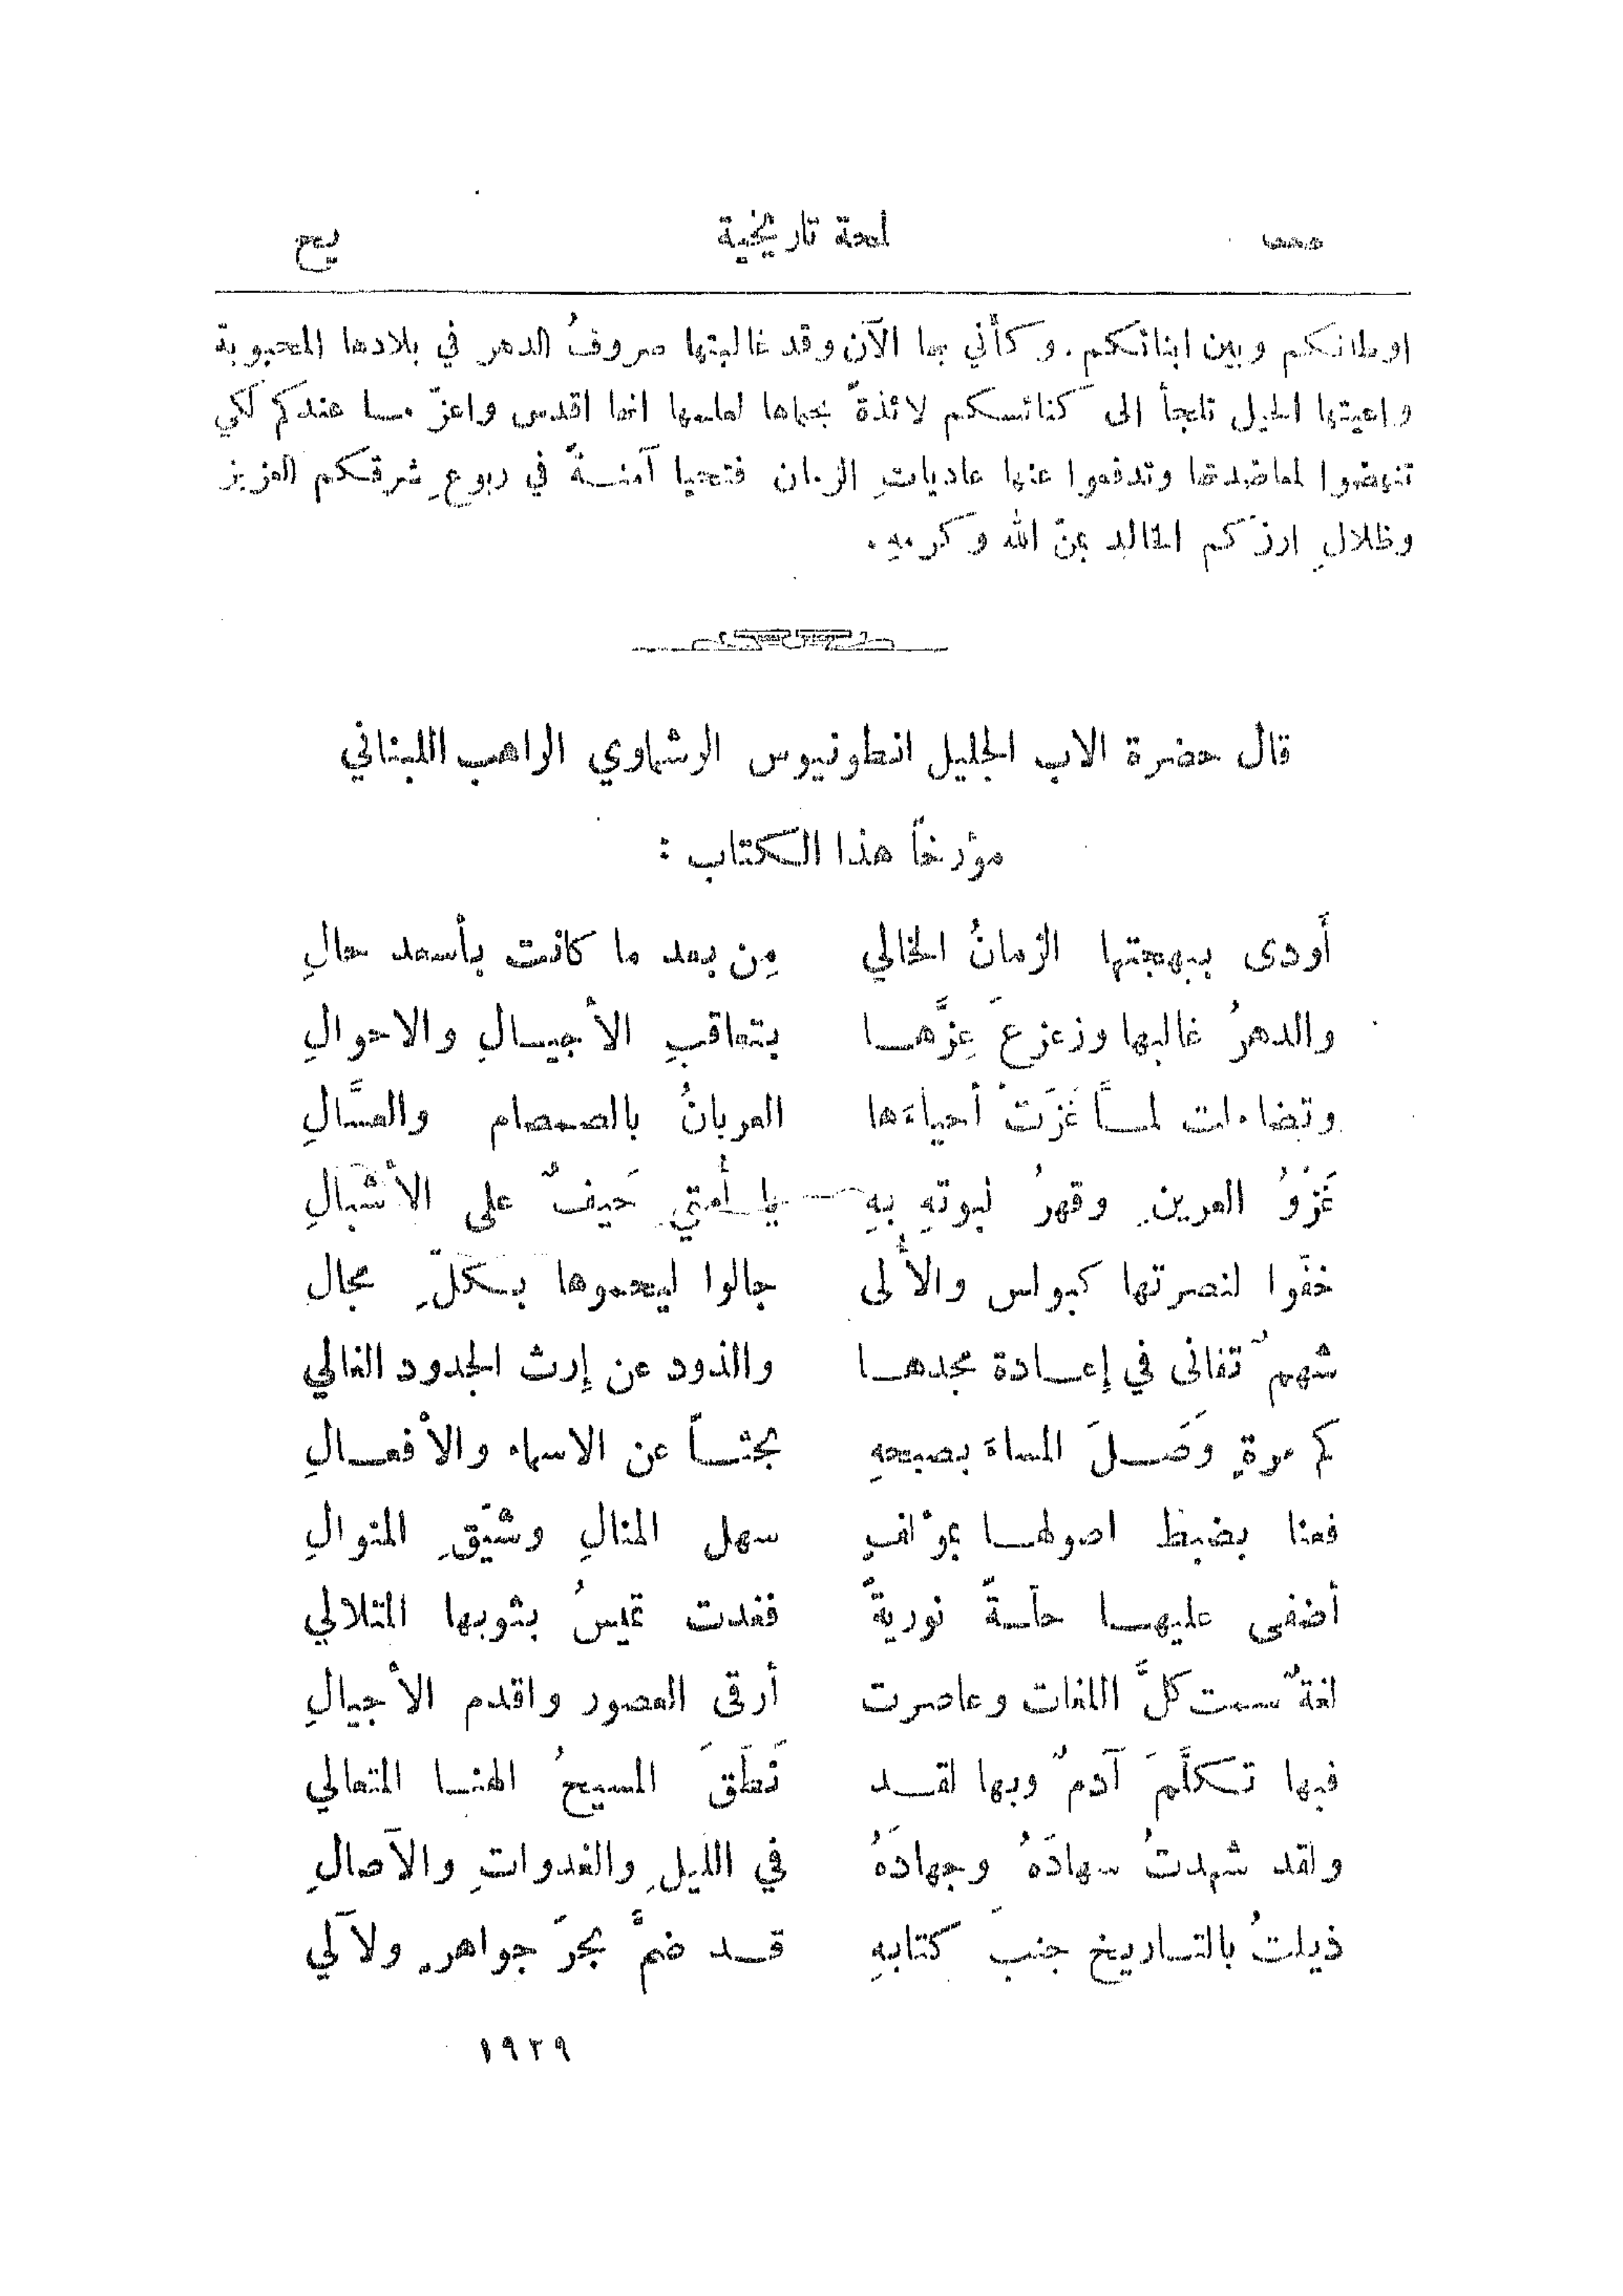 لمحة تاريخية
يح
اوطانكم وبين ابنائكم. وكأني بها الآن وقد غالبتها صروفُ الدهر في بلادها المحبوبة
واعيتها الحيل تلجأ الى كنائسكم لائذةً بحماها لعلمها انها اقدس واعزّ مـا عندكم لكي
تنهضوا لمعاضدتها وتدفعوا عنها عادياتِ الزمان فتحيا آمنـةً في ربوعِ شرقكم العزيز
وظلالِ ارزكم الخالد بمنّ الله وكرمهِ.
قال حضرة الاب الجليل انطونيوس الرشماوي الراهب اللبناني
مؤرخاً هذا الكتاب :
أَودى ببهجتها الزمانُ الخالي مِن بعد ما كانت بأسعد حالِ
والدهرُ غالبها وزعزعَ عِزَّهـا بتعاقبِ الأجيـالِ والاحوالِ
وتضاءلت لمـاَّ غَزَتْ أحياءَها العربانُ بالصمصام والعسَّالِ
غَزْوُ العرين وقهرُ لبوتهِ بهِ يا أمتي حَيفٌ على الأشبالِ
خفّوا لنصرتها كبولس والأُلى جالوا ليحموها بـكلّ مجال
شهمٌ تفانى في إعـادة مجدهـا والذود عن إرث الجدود الغالي
كم مرةٍ وَصَـلَ المساءَ بصبحهِ بحثـاً عن الاسماء والأفعـالِ
فعنا بضبط اصولهـا بمؤلفٍ سهل المنالِ وشيّقِ المنوالِ
أضفى عليهـا حلّـةً نوريةً فغدت تميسُ بثوبها المتلالي
لغةٌ سمت كلَّ اللغات وعاصرت أرقى العصور واقدم الأجيالِ
فبها تـكلَّمَ آدمٌ وبها لقـد نَطَقَ المسيحُ الهنـا المتعالي
ولقد شهدتُ سهادَهُ وجهادَهُ في الليلِ والغدواتِ والآصالِ
ذيلتُ بالتـاريخ جنبَ كتابهِ قـد ضمَّ بحرَ جواهرٍ ولآلي
١٩٢٩